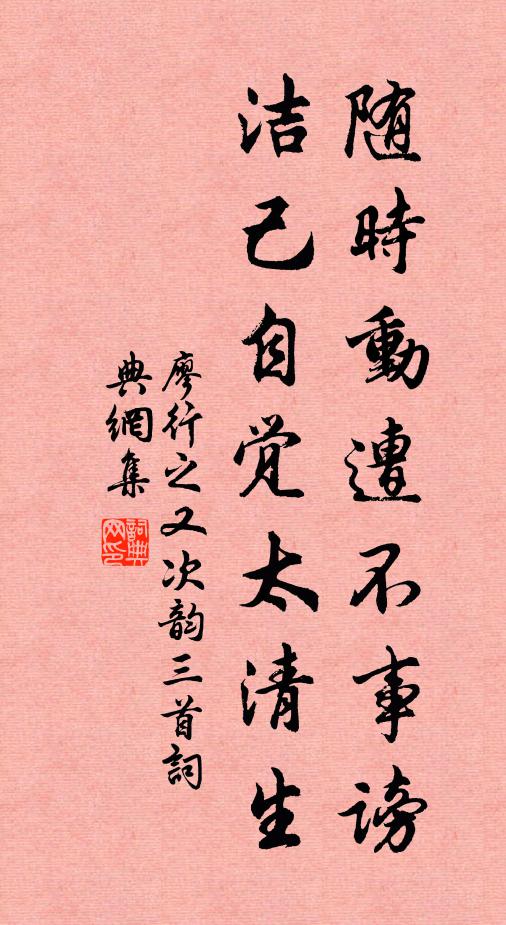 随時動遭不事謗
洁己自觉太清生
廖行之又次韵三首詞
典網集
詞典
网印